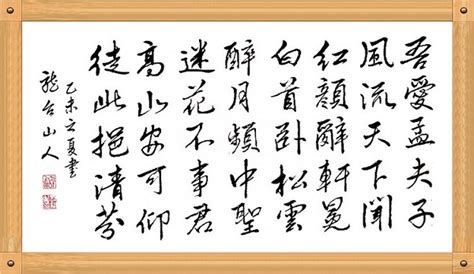 吾愛孟夫子
風流天下聞
紅顏辭軒冕
白首卧松雲
醉月頻中聖
迷花不事君
高山安可仰
徒此挹清芬
乙未立夏書
龍台山人